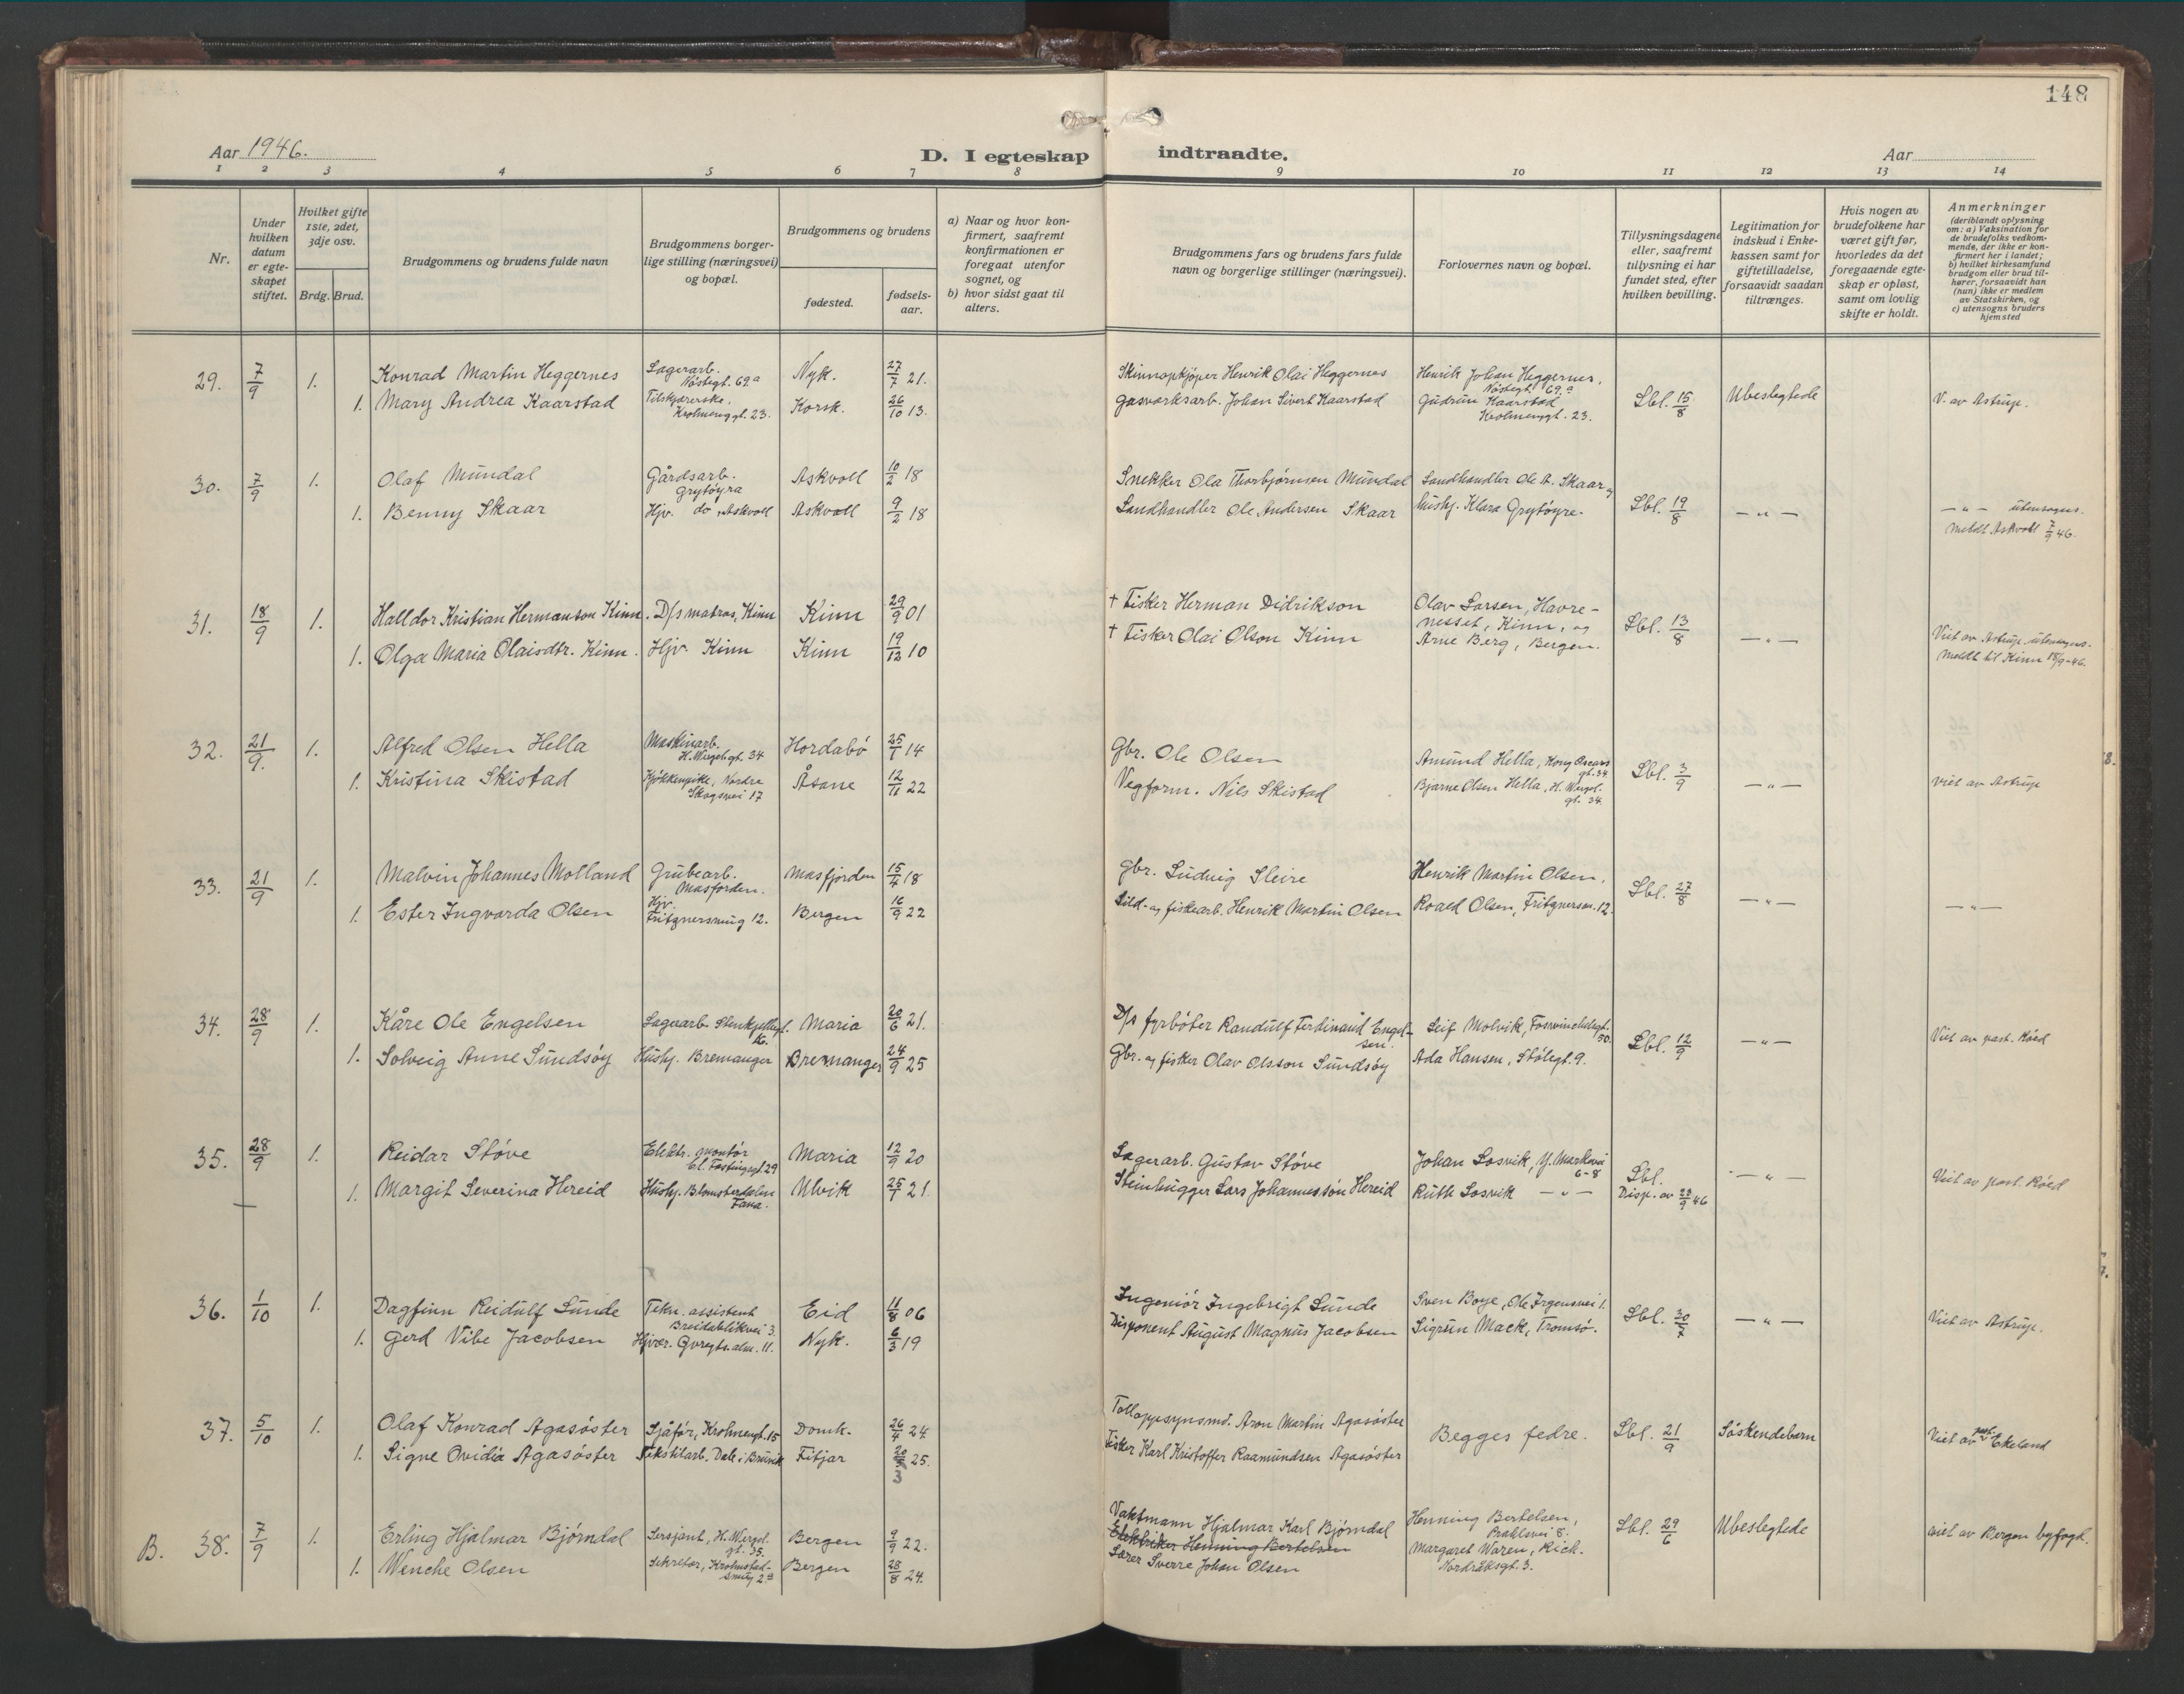 148
Aar 1946.
D. I egteskap indtraadte.
Aar
1 2 3 4 5 6 7 8 9 10 11 12 13 14
Nr.
Under hvilken datum er egteskapet stiftet.
Hvilket gifte 1ste, 2det, 3dje osv.
Brdg. Brud.
Brudgommens og brudens fulde navn
Brudgommens borgerlige stilling (næringsvei) og bopæl.
Brudgommens og brudens
fødested.
fødselsaar.
a) Naar og hvor konfirmert, saafremt konfirmationen er foregaat utenfor sognet, og
b) hvor sidst gaat til alters.
Brudgommens fars og brudens fars fulde navn og borgerlige stillinger (næringsvei).
Forlovernes navn og bopæl.
Tillysningsdagene eller, saafremt tillysning ei har fundet sted, efter hvilken bevilling.
Legitimation for indskud i Enkekassen samt for giftetilladelse, forsaavidt saadan tiltrænges.
Hvis nogen av brudefolkene har været gift før, hvorledes da det foregaaende egteskap er opløst, samt om lovlig skifte er holdt.
Anmerkninger
(deriblandt oplysning om: a) Vaksination for de brudefolks vedkommende, der ikke er konfirmert her i landet; b) hvilket kirkesamfund brudgom eller brud tilhører, forsaavidt han (hun) ikke er medlem av Statskirken, og c) utensogns bruders hjemsted
29. 7/9 1. Konrad Martin Heggernes Lagerarb. Nøstegt. 69a Nyk. 27/7 21. Skinnopkjøper Henrik Olai Heggernes Henrik Johan Heggernes, Nøstegt. 69a
1. Mary Andrea Kaarstad Tilskjærerske. Krohnenggt. 23. Korsk. 26/10 13. Gasværksarb. Johan Sivert Kaarstad Gudrun Kaarstad Krohnenggt. 23. Lbl. 15/8 Ubeslegtede V. av Astrup.
30. 7/9 1. Olaf Mundal Gårdsarb. Grytøyra Askvoll 10/2 18 Snekker Ola Thorbjørnsen Mundal Landhandler Ole A. Skaar og
1. Benny Skaar Hjv. do, Askvoll Askvoll 9/2 18 Landhandler Ole Andersen Skaar hushj. Klara Grytøyre. Lbl. 19/8 — " — — " — utensogns. Meldt Askvoll 7/9 46.
31. 18/9 1. Halldor Kristian Hermanson Kinn. D/s matros, Kinn Kinn 29/9 01 † Fisker Herman Didrikson Olav Larsen, Havrenesset, Kinn, og
1. Olga Maria Olaisdtr. Kinn. Hjv. Kinn Kinn 19/12 10 † Fisker Olai Olson Kinn Arne Berg, Bergen. Lbl. 13/8 — " — Viet av Astrup. utensogns. Meldt til Kinn 18/9-46.
32. 21/9. 1. Alfred Olsen Hella Maskinarb. H. Wergelsgt. 34 Hordabø 25/1 14 Gbr. Ole Olsen Amund Hella, Kong Oscars gt. 34.
1. Kristina Skistad Kjøkkenpike, Nordre Skogsvei 17 Åsane 12/11 22 Vegform. Nils Skistad Bjarne Olsen Hella, H. Wergel. gt. 34. Lbl. 3/9 — " — viet av Astrup
33. 21/9 1. Malvin Johannes Molland Grubearb. Masforden. Masfjorden 15/4 18 Gbr. Ludvig Sleire Henrik Martin Olsen,
1. Ester Ingvarda Olsen Hjv. Fritznersmug 12. Bergen 16/9 22 Sild- og fiskearb. Henrik Martin Olsen Roald Olsen, Fritznersm. 12. Lbl. 27/8 — " — — " —
34. 28/9 1. Kåre Ole Engelsen Lagerarb. Maria 20/6 21. D/s fyrbøter Randulf Ferdinand Engelsen. Leif Molvik, 50.
1. Solveig Anne Sundsøy Hushj. Bremanger Bremanger 24/9 25 Gbr. og fisker Olav Olsson Sundsøy Ada Hansen, Stølegt. 9. Lbl. 12/9 — " — Viet av past. Røed
35. 28/9 1. Reidar Støve Elektr. montør Cl. Fastingsgt. 29 Maria 12/9 20 Lagerarb. Gustav Støve Johan Losvik, Y. Markvei 6-8
1. Margit Severina Hereid Hushj. Blomsterdalen Fana. Ulvik 25/1 21 Steinhugger Lars Johannessøn Hereid Ruth Losvik — " — Lbl. Disp. av 23/9 46 — " — Viet av past. Røed
36. 1/10 1. Dagfinn Reidulf Sunde Tekn. assistent Breidablikvei 3. Eid 11/8 06 Ingeniør Ingebrigt Sunde Sven Boye, Ole Irgensvei 1.
1. Gerd Vibe Jacobsen Hjvær. alm. 11. Nyk. 6/3 19 Disponent August Magnus Jacobsen Sigrun Mack, Tromsø. Lbl. 30/7 — " — Viet av Astrup.
37. 5/10 1. Olaf Konrad Agasøster Sjåfør, Krohnengt. 15 Domk. 26/4 24 Tolloppsynsmd. Aron Martin Agasøster Begges fedre. Lbl. 21/9 Søskendebarn Viet av past. Ekeland
1. Signe Ovidia Agasøster Tekstilarb. Dale i Bruvik Fitjar 20/3 25. Fisker Karl Kristoffer Raamundsen Agasøster
B. 38. 7/9 1. Erling Hjalmar Bjørndal Sersjant, H. Wergel. gt. 35. Bergen 9/9 22. Vaktmann Hjalmar Karl Bjørndal Henning Bertelsen, 8. Lbl. 29/6 Ubeslegtede viet av Bergen byfogd.
Elektriker Henning Bertelsen
1. Wenche Olsen Sekretær, Krohnstadsmug 2a Bergen 28/8 24. Lærer Sverre Johan Olsen Margaret Waren, Rich. Nordråksgt. 3.